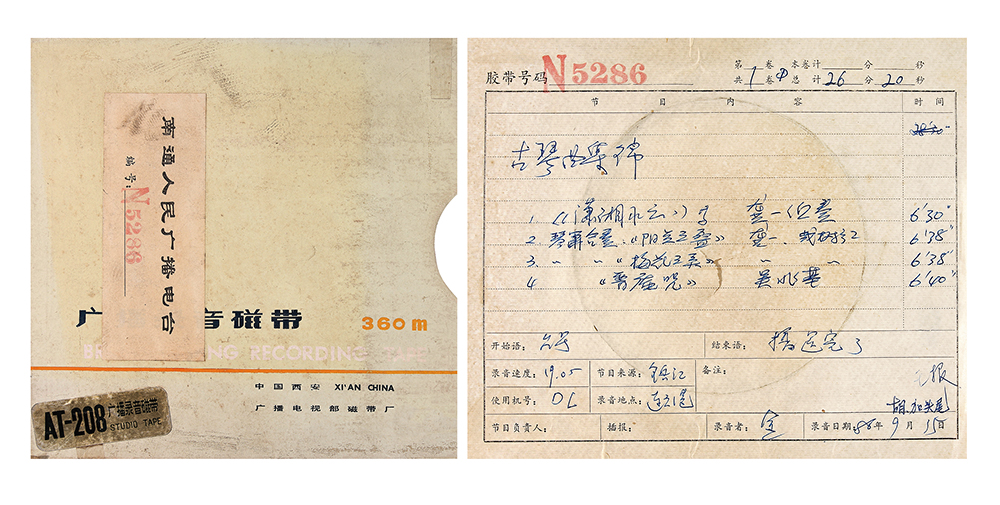 南通人民广播电台
编号:
N5286
广 音磁带
360m
RECORDING
中国西安 XI'AN CHINA
广播电视部磁带厂
AT-208 广播录音磁带
STUDIO TAPE
胶带号码 N5286
第 卷 本卷计 分 秒
共 1 卷 总 计 26 分 20 秒
节 目 内 容 时 间
古琴曲集锦
1. 《潇湘水云》 龚一 6'30"
2. 琴箫合奏:《阳关三叠》 龚一、 6'38"
3. 〃 〃 《梅花三弄》 〃 〃 6'38"
4 《普庵咒》 吴兆基 6'40"
开始语: 台号 结束语: 播送完了
录音速度: 19.05 节目来源: 镇江 备注:
使用机号: DL 录音地点:
胡、加头尾
节目负责人: 播报: 录音者: 录音日期: 86年 9月 15日